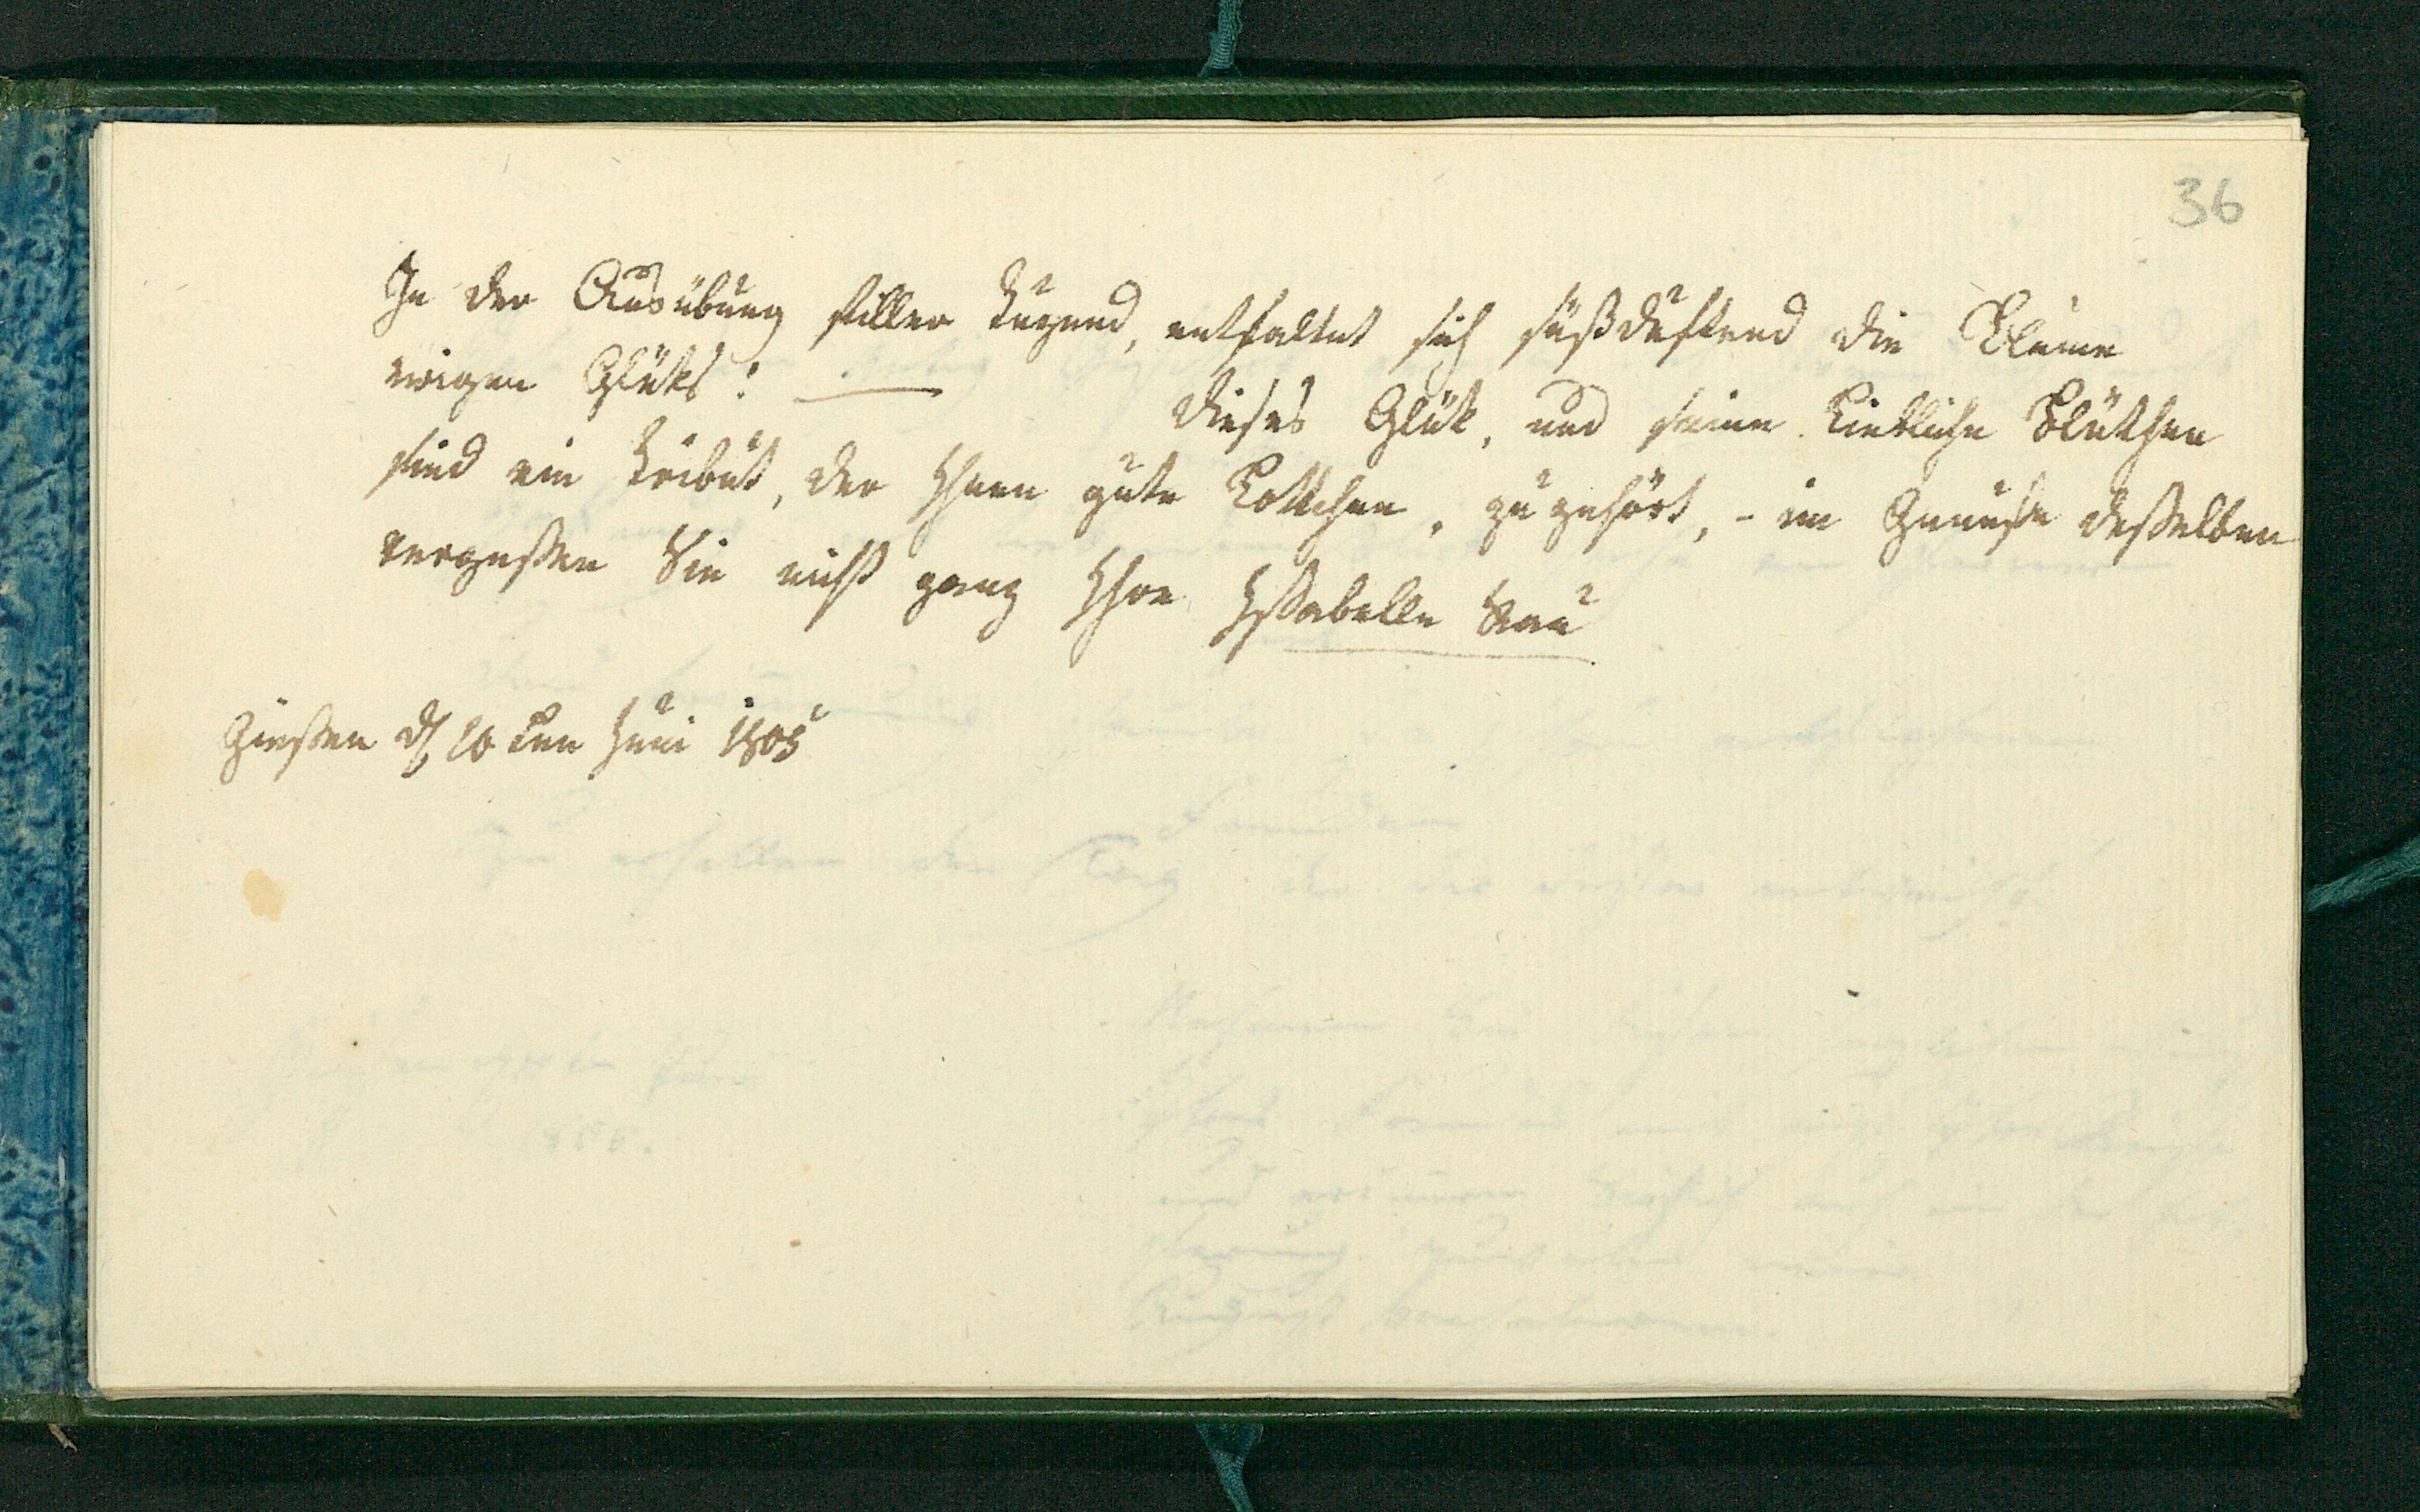 36
In der Ausübung stiller Tugend, entfaltet sich süßduftend die Blume
ewigen Glüks! —
dieses Glük, und seine liebliche Blüthen
sind ein Tribut, der Ihnen gute Lottchen, zugehört, - im Genuße deßelben
vergeßen Sie nicht ganz Ihre Ißabelle
Gießen d. ten Juni 1805